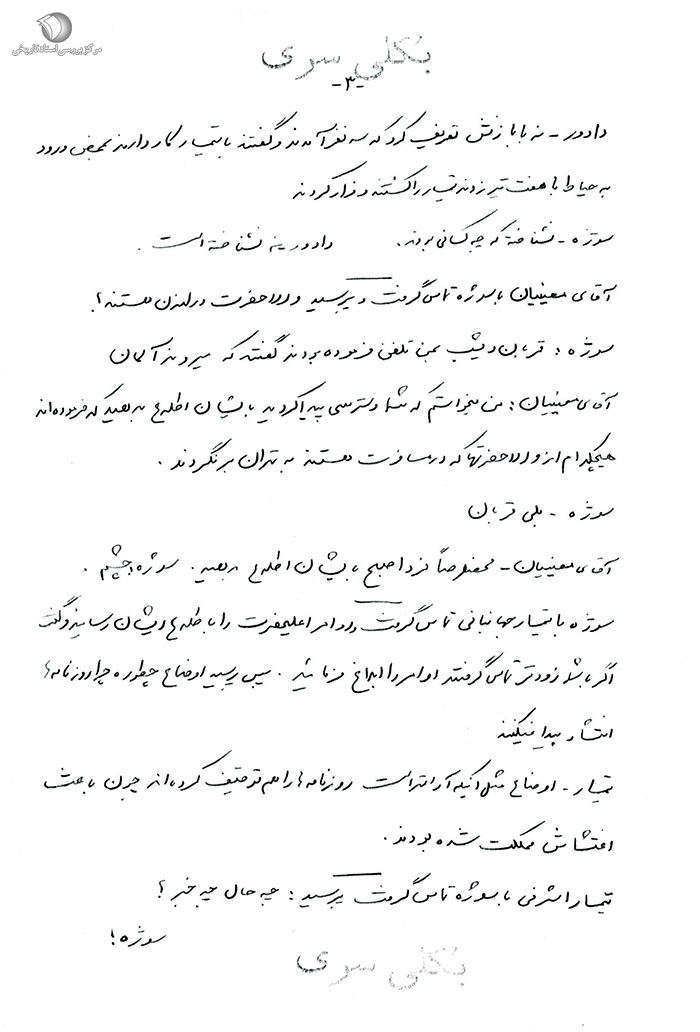 مرکز بررسی اسناد تاریخی
بکلی سری
-۳-
دادور - نه بابا زنش تعریف کرد که سه نفر آمدند و گفتند با تیمسار کار داریم بمحض ورود
به حیاط با هفت تیر زدند تیمسار را کشتند و فرار کردند
سوژه - نشناخته که چه کسانی بودند. دادور - نه نشناخته است.
آقای معینیان با سوژه تماس گرفت و پرسید والاحضرت در لندن هستند؟
سوژه: قربان دیشب بمن تلفن فرموده بودند گفتند که میروند آلمان
آقای معینیان: من میخواستم که شما دسترسی پیدا کردید بایشان اطلاع بدهید که فرموده‌اند
هیچکدام از والاحضرتها که در مسافرت هستند به تهران برنگردند.
سوژه - بلی قربان
آقای معینیان - مخصوصاً فردا صبح بایشان اطلاع بدهید. سوژه: چشم.
سوژه با تیمسار جهانبانی تماس گرفت و اوامر اعلیحضرت را باطلاع ایشان رسانید و گفت
اگر با شما زودتر تماس گرفتند اوامر را ابلاغ فرمائید. سپس پرسید اوضاع چطوره چرا روزنامه‌ها
انتشار پیدا نمیکنند
تیمسار - اوضاع مثل اینکه آرامتر است روزنامه‌ها را هم توقیف کرده‌اند چون باعث
اغتشاش مملکت شده بودند.
تیمسار اشرفی با سوژه تماس گرفت پرسید: چه حال چه خبر؟
سوژه!
بکلی سری